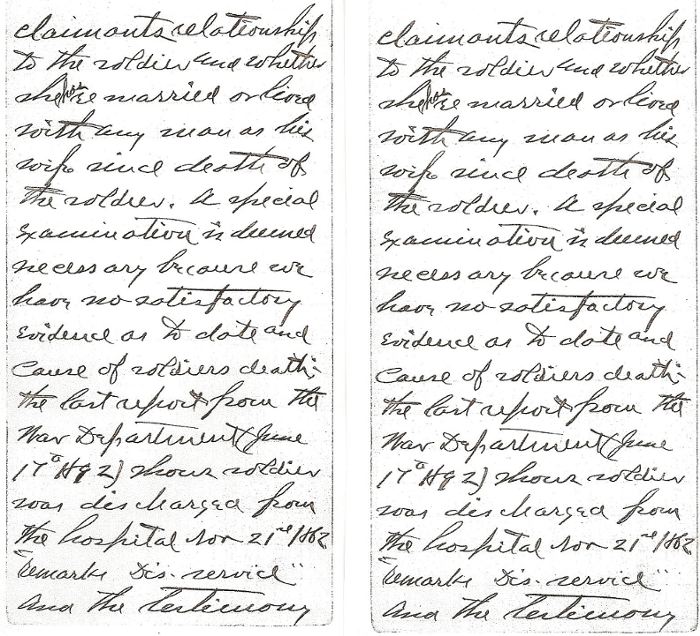 claimants relationship
to the soldier and whether
she has re married or lived
with any man as his
wife since death of
the soldier. A special
Examination is deemed
necessary because we
have no satisfactory
Evidence as to date and
Cause of soldiers death:
the last report from the
War Department (June
17" 92) shows soldier
was discharged from
the hospital Nov 21st 1862
"Remarks Dis. service"
And the testimony
claimants relationship
to the soldier and whether
she has re married or lived
with any man as his
wife since death of
the soldier. A special
Examination is deemed
necessary because we
have no satisfactory
Evidence as to date and
Cause of soldiers death:
the last report from the
War Department (June
17" 92) shows soldier
was discharged from
the hospital Nov 21st 1862
"Remarks Dis. service"
And the testimony